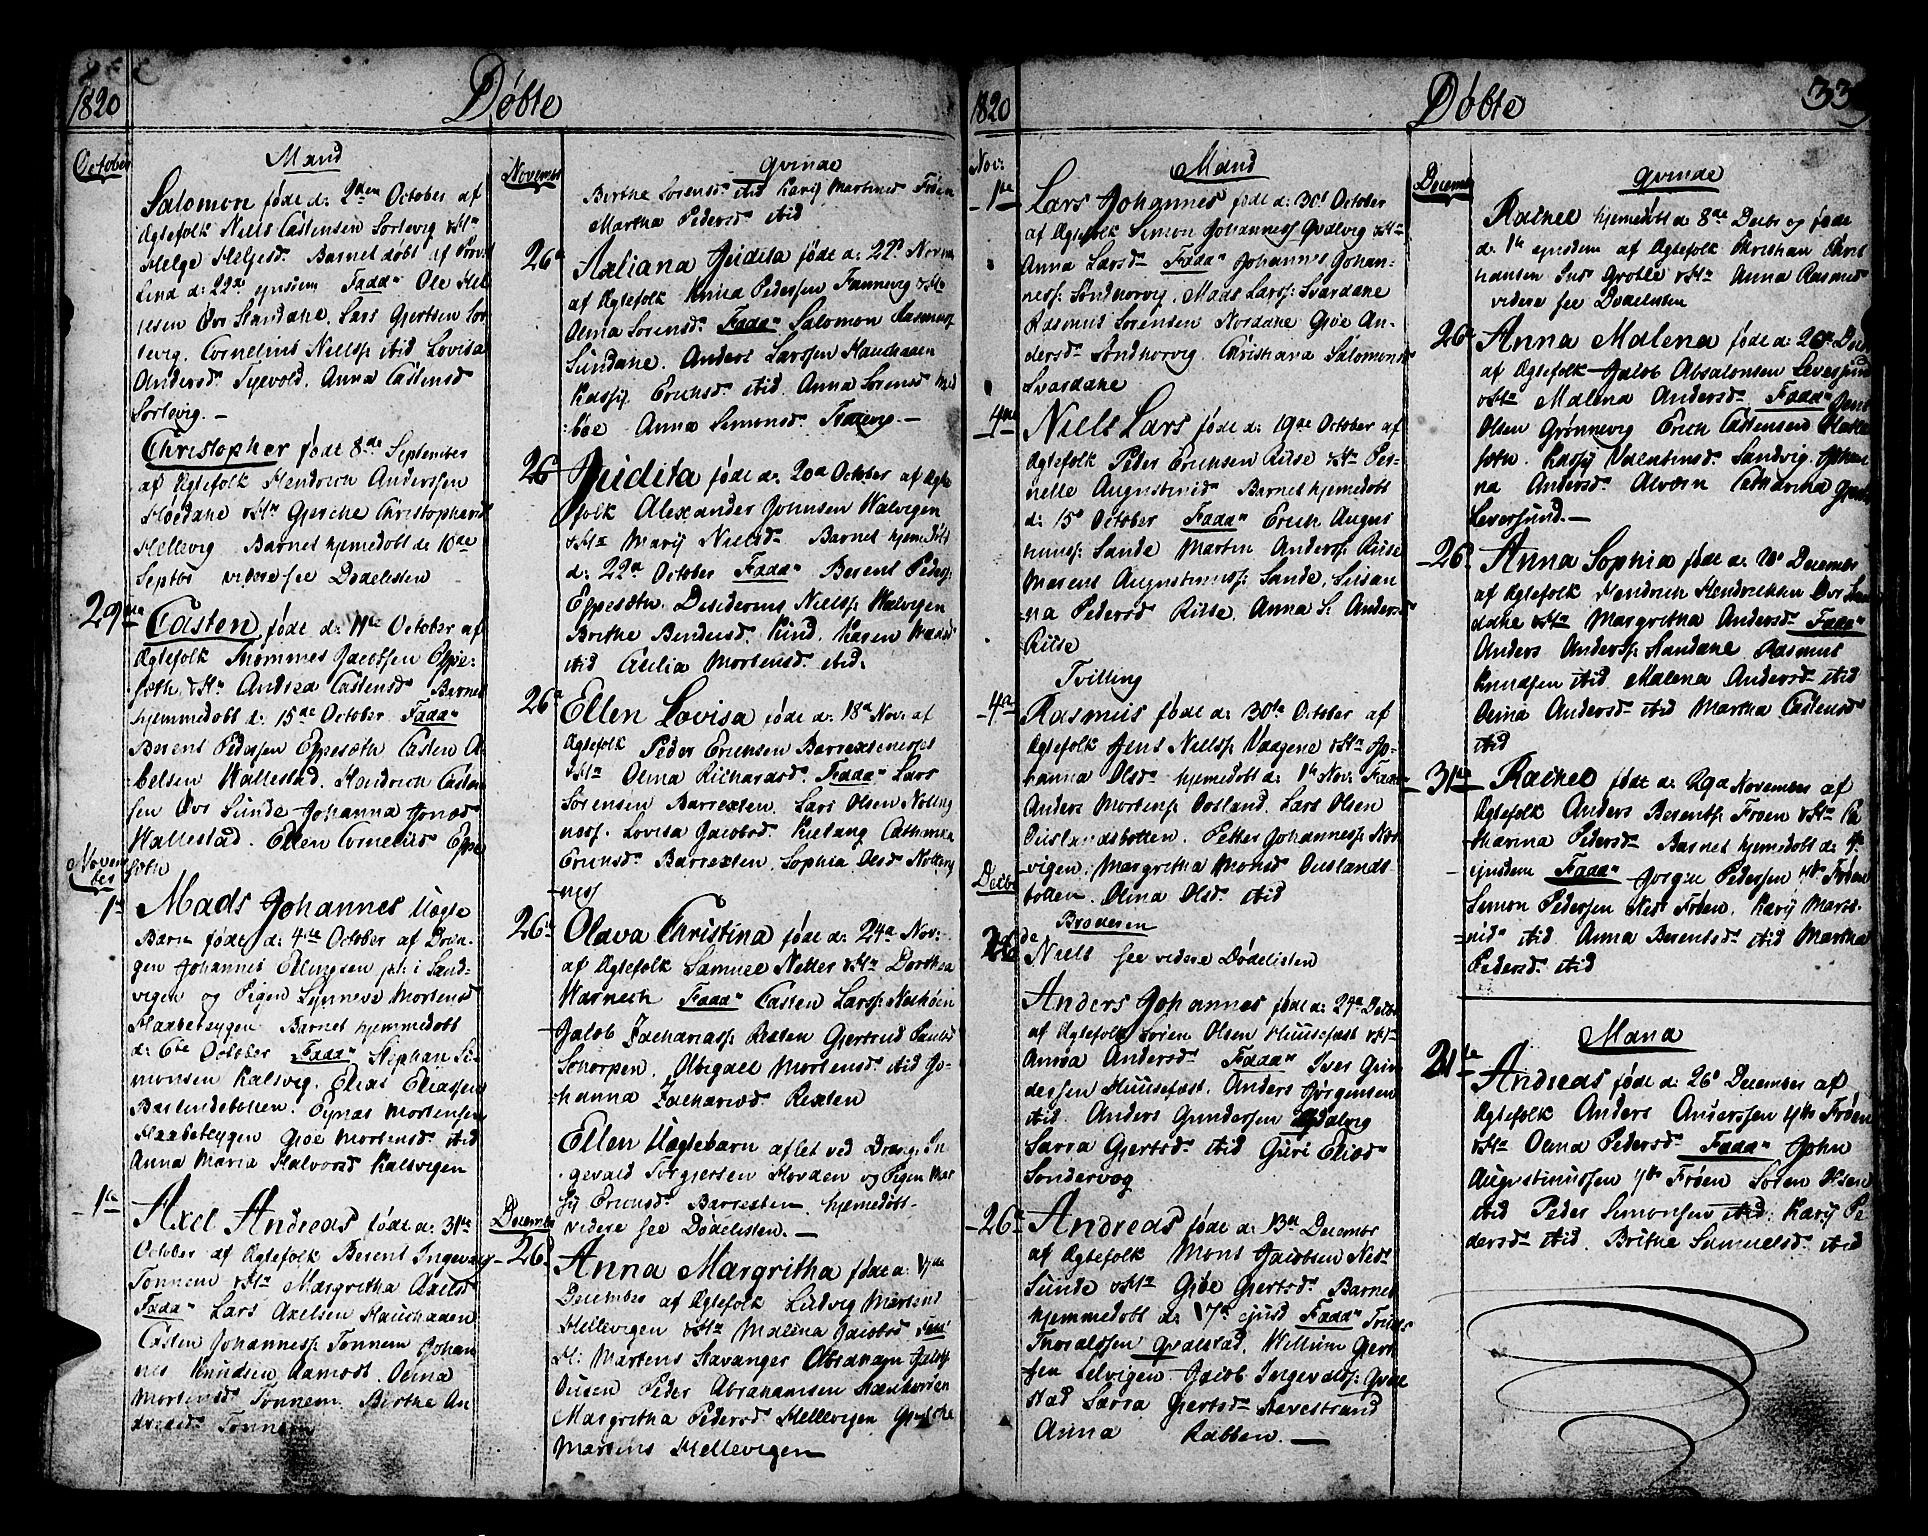 1820
Døbte
October
Mand
Salomon føde d: 2den October af
Ægtefolk Niels Castensen Sorlevig &H:
Helge Heljesd: Barnet døbt af Provst
Lind d: 22de ejusdem Fadd: Ole Hel-
lesen Øvr Standahl, Lars Gjertsen Sor
levig, Cornelius Niellsp: ibid Lovisa
Andersd: Tyevold, Anna Castensd
Sorlevig. —
Christopher føde 8de September
af Ægtefolk Hendrich Anderssen
&H: Gjerche Christophersd
Hellevig Barnet hjemedøbt de 10de
Septbr videre see Dødelisten
29de
Casten føde d: 11te October af
Ægtefolk Thommes Jacobsen Eppe-
soth &H: Andrea Castensd Barnet
hjemmedøbt d: 15de October Fadd:
Berent Pedersen Eppesoth Casten A-
belsen Wallestad, Hendrich Casten
sen Øvr Sunde Johanna Jonæd
Wallestad. Ellen Cornelius Eppe
soth
November
1te
Mads Johannes Uægte
Barn føde d: 4de October af Dren-
gen Johannes Ellingsen pt: i Sand-
vigen og Pigen Synneve Mortensd
Haabeteygen Barnet hjemmedøbt
d: 6te October Fadd: Stephan Si-
monsen Kalsvig. Elias Eliassen
Batlendebotten. Eynas Mortensen
Haabeteygen Gjøe Mortensd: ibid
Anna Maria Halvorsd Kalsvigen
1te
Axel Andreas føde d: 31te
October af Ægtefolk Berent Ingevaj-
Tonnem &H: Margretha Axelsd
Fadd: Lars Axelsen Hauchaaen
Casten Johannesp: Tonnem Johan
nes Knudsen Aamodt Oelina
Mortensd Tonnem, Birthe An
dreasd: Tonnem
November
qvinde
Birthe Sorensd: ibid Karij Martinsd Frøen
Martha Pedersd ibid
26de
Axliana Judita føde d: 22de Novem
af Ægtefolk Knud Pedersen Tanneviig &H:
Olina Sorensd: Fadd: Salomon Rasmusp
Sundahl. Anders Larssen Hauchaaen
Kassij Erichsd ibid Anna Sorensd Mid
boe Anna Simonsd. —
26
Judita føde d: 20de October af Ægte
folk Alexander Johnsen Walvigen
&H: Marij Nielsd: Barnet hjemedøbt
d: 22de October Fadd: Berent Peders:
Eppesoth. Desiderius Nielsp: Walvigen
Brithe Bendersd: Kind. Karen
ibid Cecilia Mortensd: ibid:
26de
Ellen Lovisa føde d: 18de Nov: af
Ægtefolk Peder Erichsen
&H: Olina Richardsd: Fadd: Lars
Sorensen Barrexten. Lars Olsen Notting
nesp. Lovisa Jacobsd: Kielang Cathrina
Erichsd: Barrexten. Sophia Olsd: Notting
nesp
26de
Olava Christina føde d: 24de Nov:
af Ægtefolk Samuel Netter &H: Dorthea
Warnech Fadd: Casten Larsp:
Jacob Zachariasp: Rexten Gjertrud Paulsd
Schorpen. Abigael Mortensd: ibid Jo-
hanna Zachariæd: Rexten
Ellen Uægtebarn aflet ved Dreng: In
gevald Torgjersen Horden og Pigen Mar
ij Erichsd: Barrexten, hjemedøbt
videre see Dødelisten. —
December
26de
Anna Margritha føde d: 17de
December af Ægtefolk Ludvig Martens
Hellevigen &H: Malina Jacobsd Fadd
H: Martens Stavanger Abraham Jacobp:
Ousen Peder Abrahamsen
Margretha Pedersd Hellevigen
Martens Hellevigen
1820
Døbte
33
Nov:
Mand
1te
Lars Johannes føde d: 30te October
af Ægtefolk Simon Johannesp Qvalvig &H:
Anna Larsd: Fadd: Johannes Johan-
nesp: Sondhorvig, Mads Larsp: Svardahl
Rasmus Sorensen Nordahl Gjøe An-
dersd: Sondhorvig. Christiana Salomonsd
Svardahl
4de
Niels Lars føde d: 19de October af
Ægtefolk Peder Erichsen Riise &H: Per-
nelle Augustinid Barnet hjemedøbt
d: 15de October Fadd: Erich Augus
tinusp: Sande Martin Andersp: Riise
Marent Augustinusp: Sande, Susan
na Pedersd Riise, Anna S: Andersd
Riise
Tvilling
4de
Rasmus føde d: 30te October af
Ægtefolk Jens Nielsp: Vaagene &H: Jo-
hanna Olsd: hjemedøbt d: 1te Nov: Fadd:
Anders Mortensp: Ousland, Lars Olsen
Ouslandsbotten. Petter Johannesp: Nor
vigen. Margretha Monsd: Ouslands
botten. Olina Olsd: ibid
Decbr
Broderen
26de
Niels see videre Dødelisten
Anders Johannes føde d: 24de Decbr
af Ægtefolk Sorén Olsen Huusefast &H:
Anna Andersd: Fadd: Iver Gun
dersen Huusefast, Anders Jørgensen
ibid. Anders Gundersen
Sarra Gjertsd: ibid Guri Eliæd:
Sondervog
26de
Andreas føde d: 13de December
af Ægtefolk Mons Jacobsen Ned:
Sunde &H: Gjøe Gjertsd: Barnet
hjemmedøbt d: 17de ejusd Fadd:
Thoralssen Qvalstad. Willum Gjert
sen Selvigen. Jacob Ingevaldsp: Qval
stad Sarra Gjertsd: Havestrand
Anna Ratten. —
December
qvinde
Rachel hjemedøbt d: 8de Decbr og føde
d: 1te ejusdem af Ægtefolk Christian Chris
tiansen Ins: Grotle &H: Anna Rasmusd
videre see Dødelisten
26de
Anna Malena føde d: 20de Decem
af Ægtefolk Jacob Absalonsen Leversund
&H: Malena Andersd: Fadd: Jens
Olsen Grønnevig Erich Castensen
soth. Karij Valentinsd: Sandvig. Johan
na Andersd: Alværn Cathrina
Leversund. —
26de
Anna Sophia føde d: 10de December
af Ægtefolk Hendrich Hendrichsen Øvr Stan
dahl &H: Margretha Andersd: Fadd:
Anders Andersp: Standahl Rasmus
Knudsen ibid Malena Andersd: ibid
Oelina Andersd: ibid Martha Castensd:
ibid
31te
Rachel føde d: 29de November af
Ægtefolk Anders Berentsp: Frøen &H: Ca
tharina Pedersd: Barnet hjemedøbt d: 4de
ejusdem Fadd: Jorgen Pedersen Yt: Frøen
Simon Pedersen Ned Frøen. Karij Marte-
nid ibid Anna Berentsd: ibid Martha
Pedersd: ibid
Mand
21de
Andreas føde d: 26de December af
Ægtefolk Anders Anderssen Ytr Frøen
&H: Oelina Pedersd: Fadd: John
Augustinussen Ytr Frøen Soren Olsen
ibid Peder Simonsen ibid: Karij Pe
dersd: ibid. Brithe Samuelsd: ibid